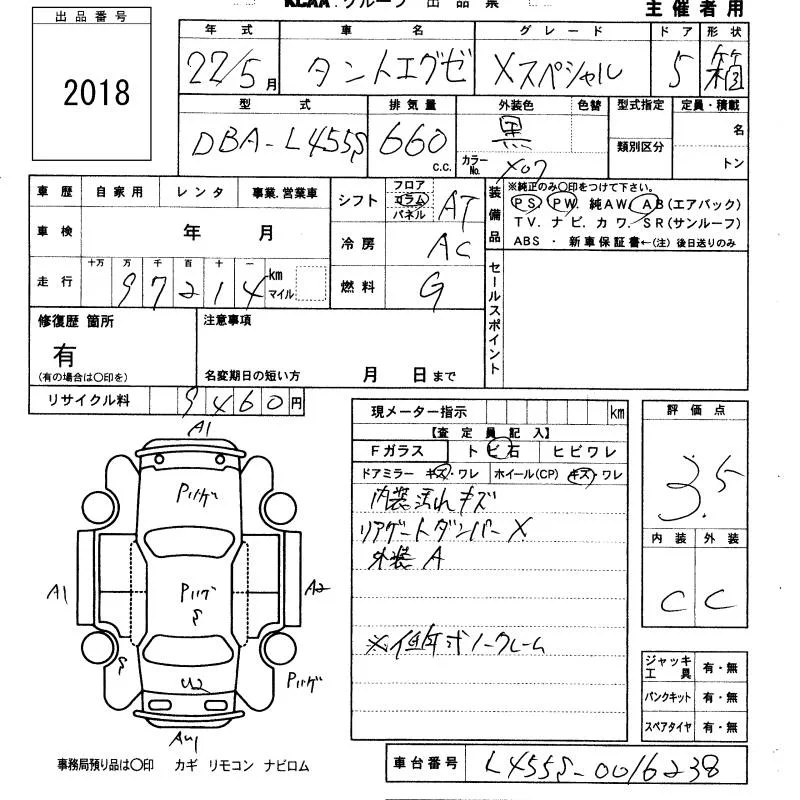 出品番号
2018
KCAA グループ 出品票
主催者用
年式 車名 グレード ドア 形状
22/5月 タントエグゼ Xスペシャル 5 箱
型式 排気量 外装色 色替 型式指定 定員・積載
DBA-L455S 660 c.c. 黒 名
カラーNo. X07 類別区分 トン
車歴 自家用 レンタ 事業.営業車
シフト フロア コラム パネル AT
車検 年 月
冷房 AC
走行 十万 万 千 百 十 一
97214 km マイル
燃料 G
装備品 ※純正のみ○印をつけて下さい。
PS PW 純AW. AB(エアバック)
TV. ナビ. カワ. SR(サンルーフ)
ABS ・ 新車保証書←(注)後日送りのみ
セールスポイント
修復歴 箇所
有
(有の場合は○印を)
注意事項
名変期日の短い方 月 日まで
リサイクル料 9460円
現メーター指示 km
【査定員記入】
Fガラス トビ石 ヒビワレ
ドアミラー キズ・ワレ ホイール(CP) キズ・ワレ
内装 汚れ キズ
リアゲートダンパー X
外装 A
※低年式ノークレーム
評価点
3.5
内装 外装
C C
ジャッキ工具 有・無
パンクキット 有・無
スペアタイヤ 有・無
A1
Pハゲ
A1
Pハゲ
S
A2
S
U2
Pハゲ
AU1
事務局預り品は○印 カギ リモコン ナビロム
車台番号 L455S-0016238